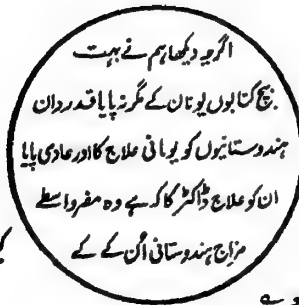 اگرچہ دیکھا ہم نے بہت
بیچ کتابوں یونان کے مگر نہ پایا قدردان
ہندوستانیوں کو یونانی علاج کا اور عادی پایا
ان کو علاج ڈاکٹر کا کہ ہے وہ مضر واسطے
مزاج ہندوستانی اُن کے کے